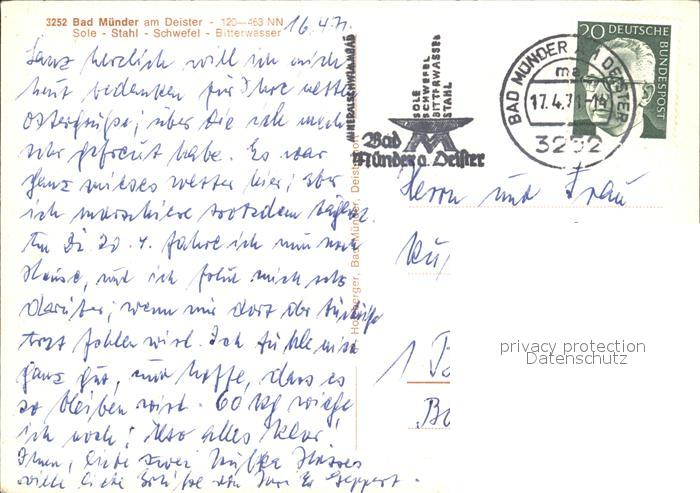 3252 Bad Münder am Deister - 120—463 NN
Sole - Stahl - Schwefel - Bitterwasser
16.4.71.
Ganz herzlich will ich mich
heut bedanken für Ihre netten
Ostergrüße, über die ich mich
sehr gefreut habe. Es war
ganz mieses Wetter hier; aber
ich marschiere trotzdem täglich.
Am Di 20.4. fahre ich nun nach
Hause, und ich freue mich sehr
darüber; wenn mir dort der
Arzt fehlen wird. Ich fühle mich
ganz gut, und hoffe, dass es
so bleiben wird. 60 kg wiege
ich noch! Also alles klar!
Ihnen, liebe zwei
viele liebe Grüße von Ihrer Geppert.
MINERALSCHWIMMBAD
SOLE
SCHWEFEL
BITTERWASSER
STAHL
Bad
Münder a. Deister
BAD MÜNDER AM DEISTER
17.4.71-14
3252
20 DEUTSCHE
BUNDESPOST
Herrn und Frau
1
Bad Münder, Deisterstr.
privacy protection
Datenschutz